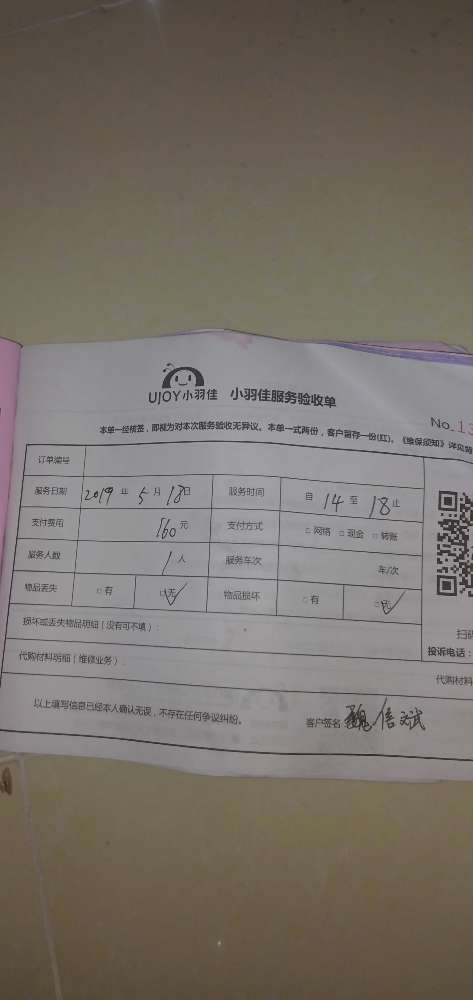 UJOY小羽佳 小羽佳服务验收单
No.13
本单一经核签，即视为对本次服务验收无异议。本单一式两份，客户留存一份(红)。《维保须知》详见背
订单编号
服务日期 2019 年 5 月 18日 服务时间 自 14 至 18 止
支付费用 160 元 支付方式 □ 网络 □ 现金 □ 转账
服务人数 1 人 服务车次 车/次
物品丢失 □ 有 □ 无 ✓ 物品损坏 □ 有 □ 无 ✓
损坏或丢失物品明细（没有可不填）：
扫码
投诉电话：
代购材料明细（维修业务）： 代购材料
以上填写信息已经本人确认无误，不存在任何争议纠纷。 客户签名 魏信斌